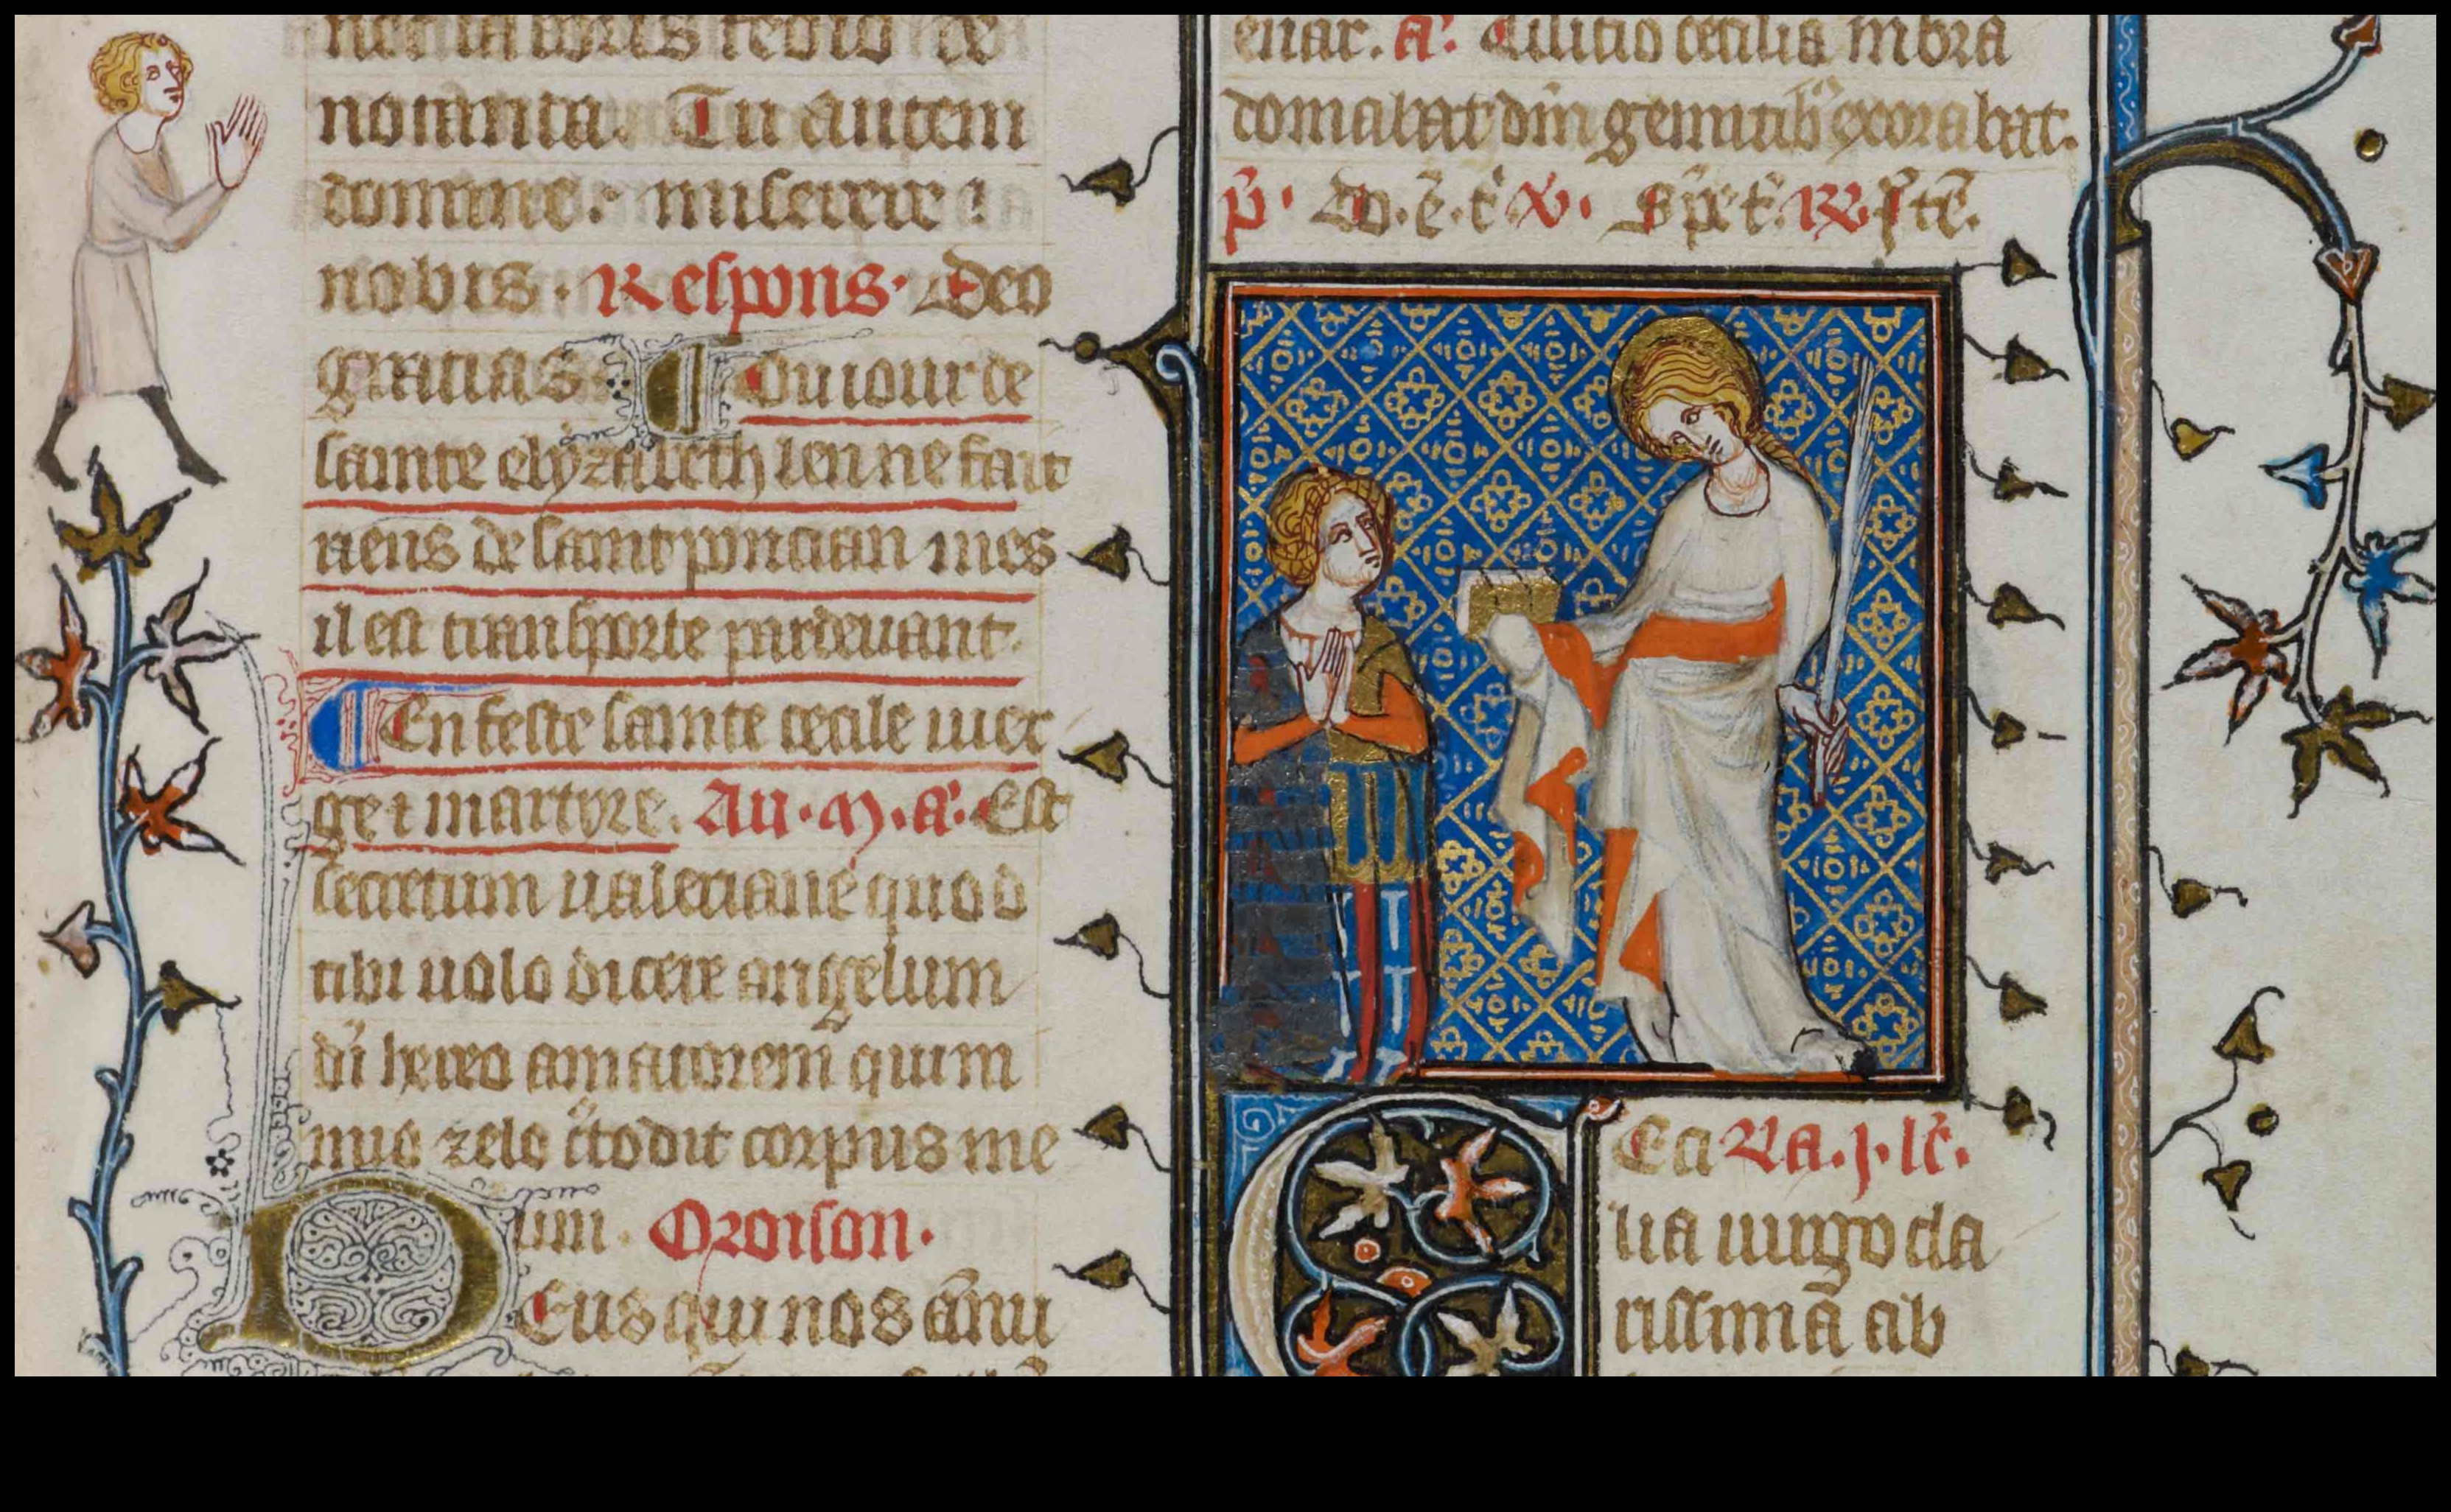 nomina. Tu autem
domine: miserere
nobis. Respons. Deo
gratias Du iour de
sainte elyzabeth len ne fait
riens de saint poncian mes
il est transporte pardeuant.
En feste sainte cecile uier
ge ⁊ martyre. Au. M. a. Est
secretum ualeriane quod
tibi uolo dicere angelum
dī habeo amatorem qui nim
mio zelo c̄todit corpus me
um. Oroison.
Eus qui nos ānu
a. Cilicio cecilia mbra
domabat dm̄ gemitib exorabat.
Ea. j. lc̄.
lia uirgo cla
rissima ab